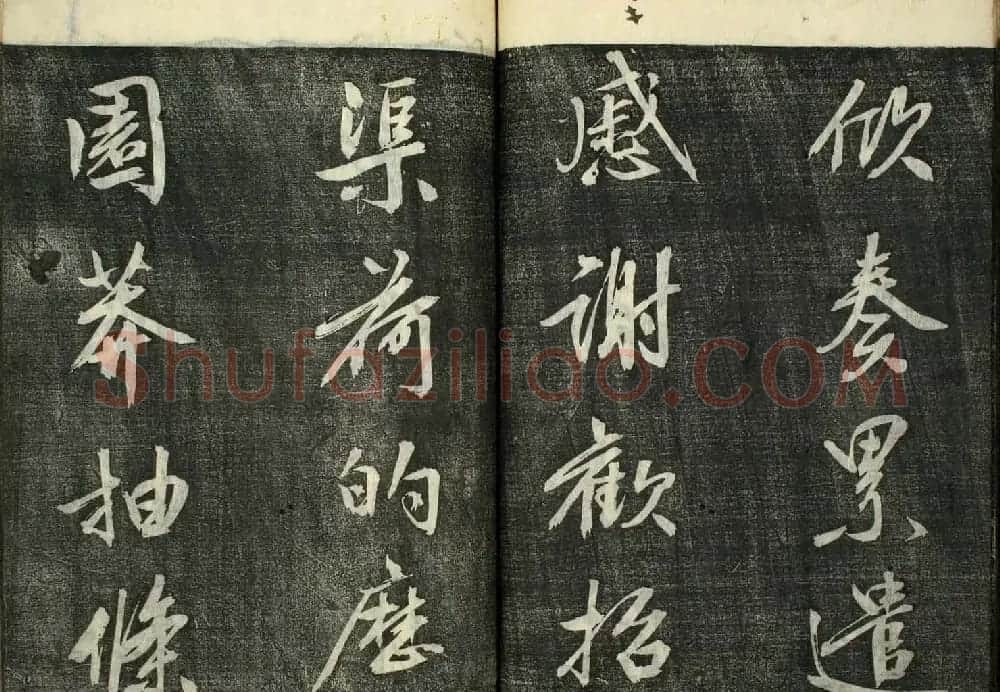 欣奏累遣
慼謝歡招
渠荷的歷
園莽抽條
Shufaziliao.COM